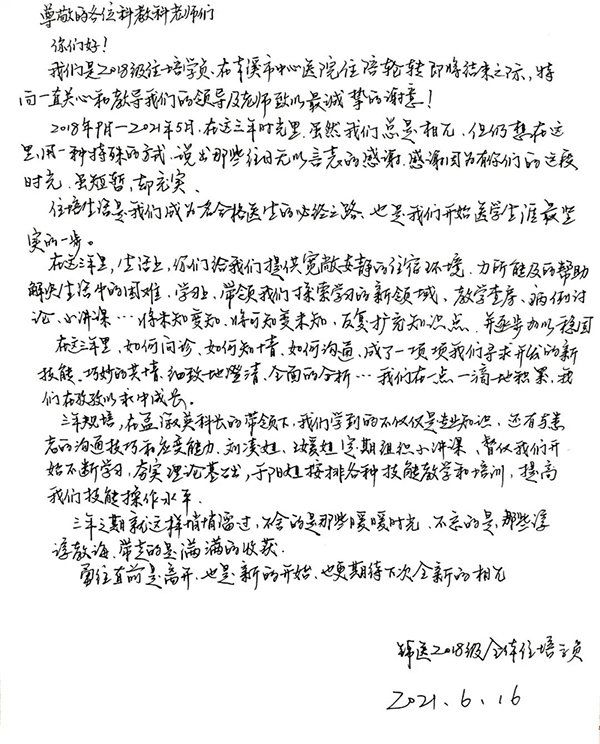 尊敬的各位科教科老师们
你们好！
我们是2018级住培学员，在本溪市中心医院住陪轮转即将结束之际，特
向一直关心和教导我们的领导及老师致以最诚挚的谢意！
2018年9月—2021年5月，在这三年时光里，虽然我们总是相见，但仍想在这
里，用一种特殊的方式，说出那些往日无以言表的感谢，感谢因为有你们的这段
时光，虽短暂，却充实、
住培生活是我们成为一名合格医生的必经之路，也是我们开始医学生涯最坚
实的一步。
在这三年里，生活上，你们给我们提供宽敞安静的住宿环境，力所能及的帮助
解决生活中的困难，学习上，带领我们探索学习的新领域，教学查房、病例讨
论、小讲课…将未知变知，将可知变未知，反复扩充知识点，并逐步加以稳固
在这三年里，如何问诊、如何知情、如何沟通，成了一项项我们寻求开始的新
技能，巧妙的共情，细致地澄清，全面的分析…我们在一点一滴地积累，我
们在孜孜以求中成长。
三年规培，在孟淑英科长的带领下，我们学到的不仅仅是专业知识，还有与患
者的沟通技巧和应变能力，刘凑姐、媛姐定期组织小讲课、督促我们开
始不断学习，夯实理论基础，于阳姐按排各种技能教学和培训，提高
我们技能操作水平。
三年之期就这样悄悄溜过，不舍的是那些暖暖时光，不忘的是，那些谆
谆教诲，带走的是满满的收获.
勇往直前是离开，也是新的开始，也更期待下次全新的相见
锦医2018级全体住培学员
2021.6.16